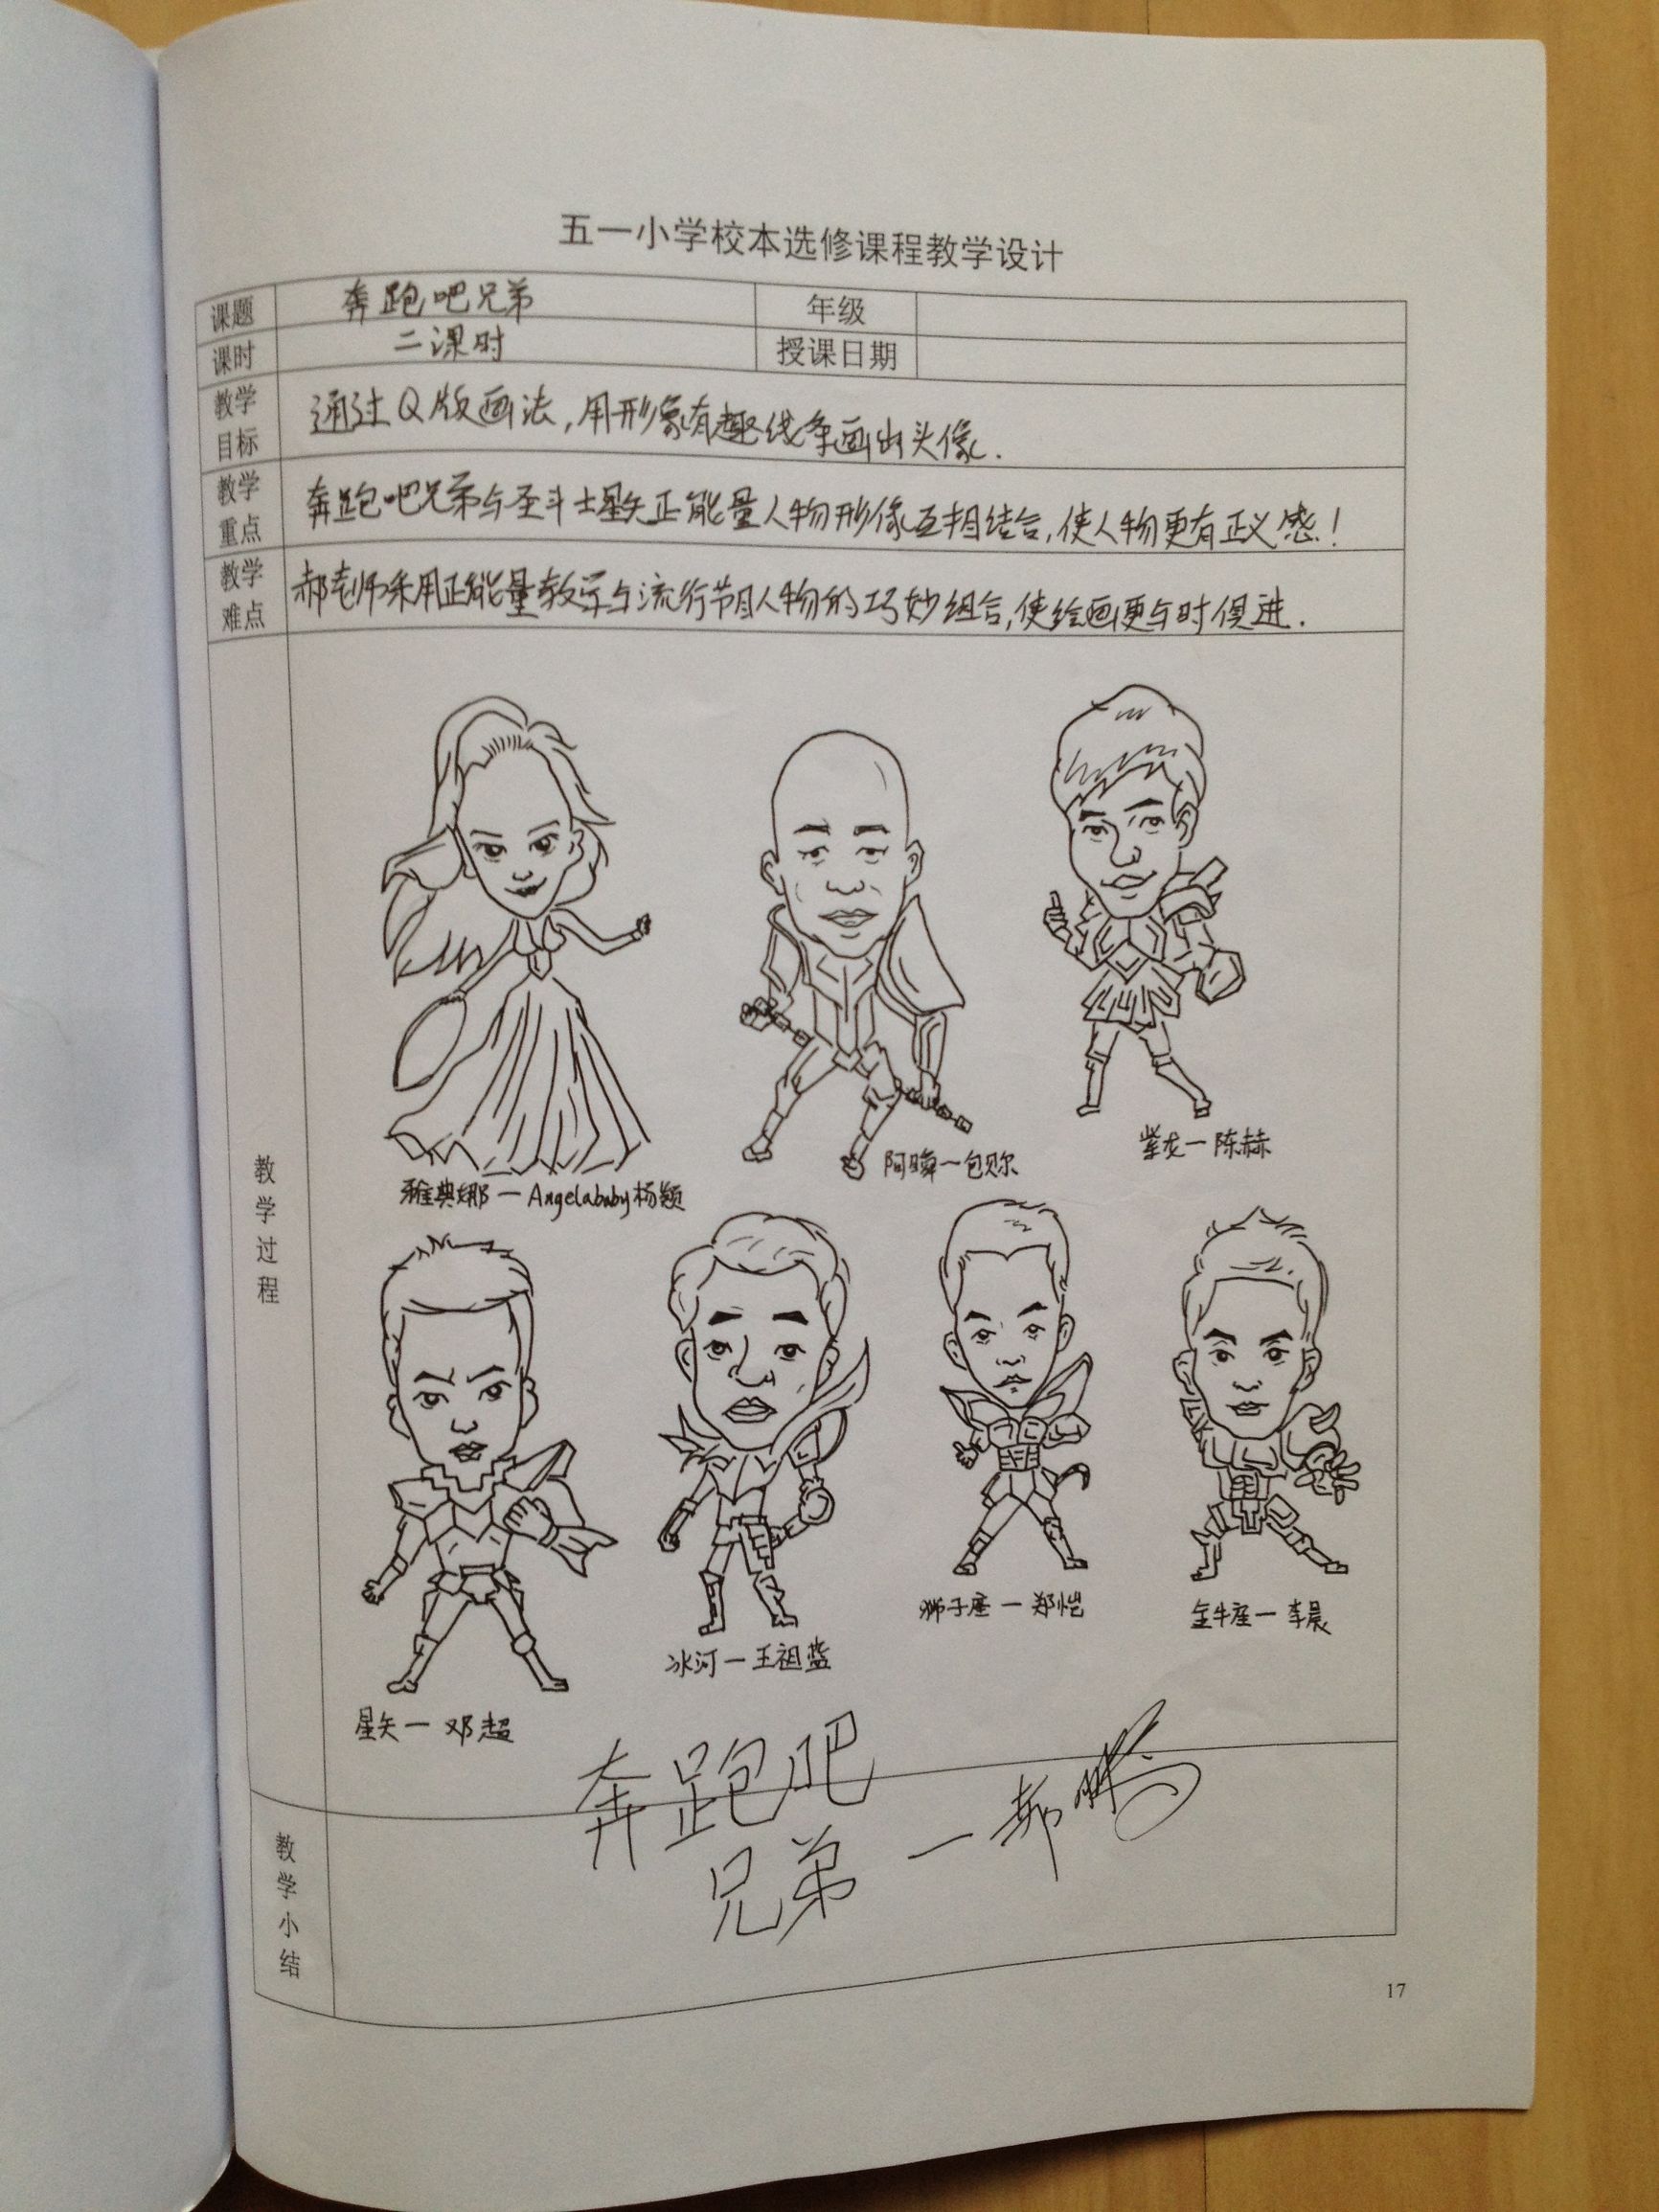 五一小学校本选修课程教学设计
课题 奔跑吧兄弟 年级
课时 二课时 授课日期
教学目标 通过Q版画法,用形象有趣线条画出头像.
教学重点 奔跑吧兄弟与圣斗士星矢正能量人物形像互相结合,使人物更有正义感!
教学难点 郝老师采用正能量教学与流行节目人物的巧妙组合,使绘画更与时俱进.
教学过程
雅典娜—Angelababy杨颖
阿瞬—包贝尔
紫龙—陈赫
星矢—邓超
冰河—王祖蓝
狮子座—郑恺
金牛座—李晨
奔跑吧
兄弟—郝
教学小结
17